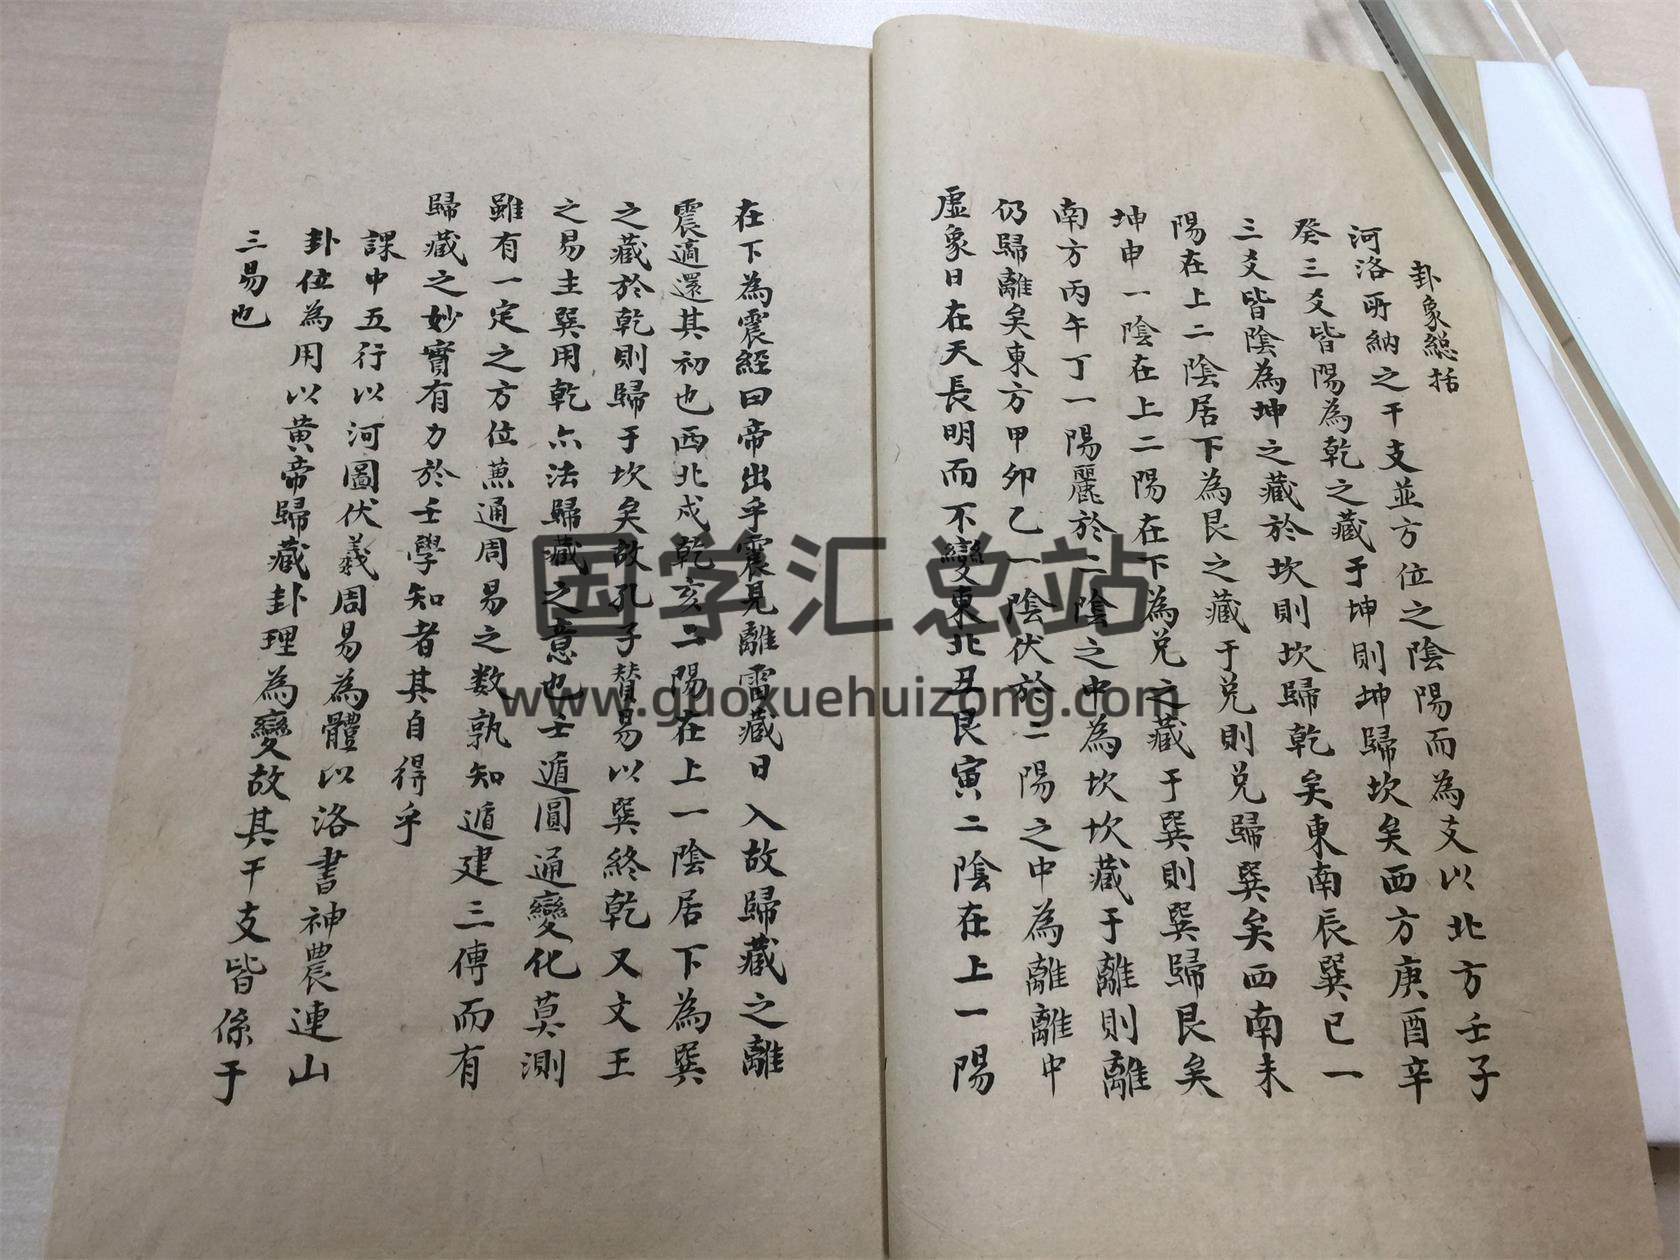 卦象總括
河洛所納之干支並方位之陰陽而為支以北方壬子
癸三爻皆陽為乾之藏于坤則坤歸坎矣西方庚酉辛
三爻皆陰為坤之藏於坎則坎歸乾矣東南辰巽巳一
陽在上二陰居下為艮之藏于兌則兌歸巽矣西南未
坤申一陰在上二陽在下為兌之藏于巽則巽歸艮矣
南方丙午丁一陽麗於二陰之中為坎坎藏于離則離
仍歸離矣東方甲卯乙一陰伏於二陽之中為離離中
虛象日在天長明而不變東北丑艮寅二陰在上一陽
在下為震經曰帝出乎震見離雷藏日入故歸藏之離
震適還其初也西北戍乾亥二陽在上一陰居下為巽
之藏於乾則歸于坎矣故孔子贊易以巽終乾又文王
之易主巽用乾六法歸藏之意也壬遁圓通變化莫測
雖有一定之方位蕙通周易之数孰知遁建三傳而有
歸藏之妙實有力於壬學知者其自得乎
課中五行以河圖伏羲周易為體以洛書神農連山
卦位為用以黃帝歸藏卦理為變故其干支皆係于
三易也
国学汇总站
www.guoxuehuizong.com